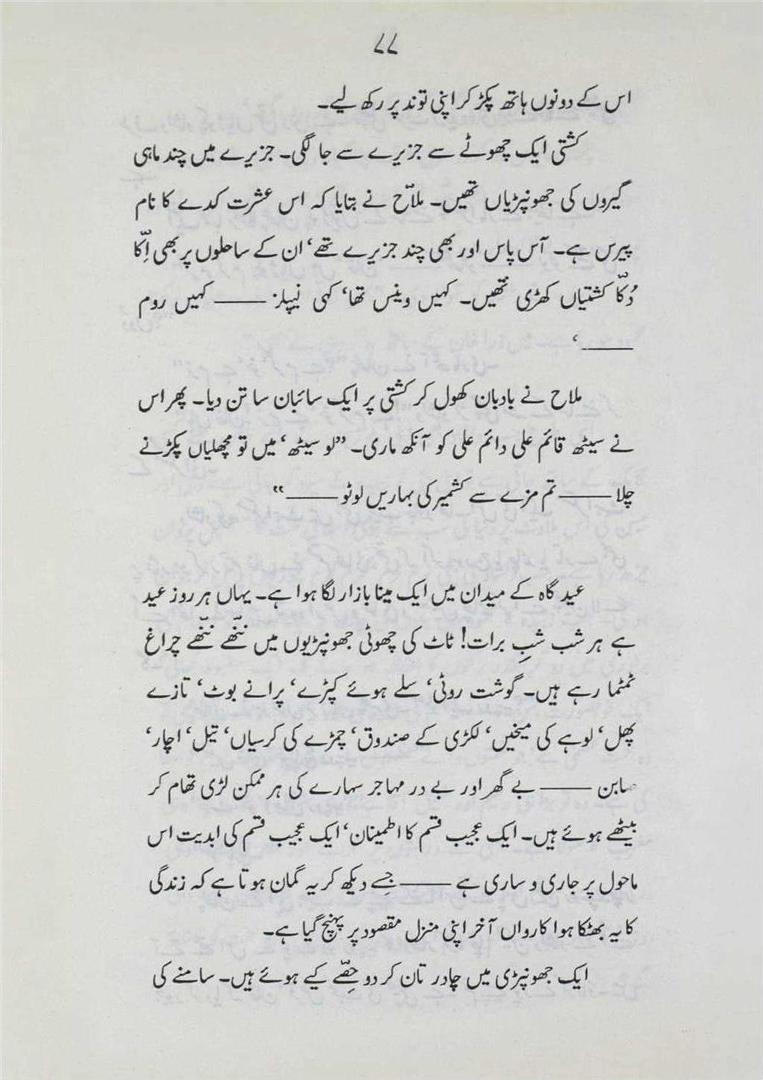 ۷۷
اس کے دونوں ہاتھ پکڑ کر اپنی توند پر رکھ لیے۔
کشتی ایک چھوٹے سے جزیرے سے جا لگی۔ جزیرے میں چند ماہی
گیروں کی جھونپڑیاں تھیں۔ ملاّح نے بتایا کہ اس عشرت کدے کا نام
پیرس ہے۔ آس پاس اور بھی چند جزیرے تھے‘ ان کے ساحلوں پر بھی اِکا
دُکّا کشتیاں کھڑی تھیں۔ کہیں وینس تھا‘ کہی نیپلز —— کہیں روم
——‘
ملاح نے بادبان کھول کر کشتی پر ایک سائبان سا تن دیا۔ پھر اس
نے سیٹھ قائم علی دائم علی کو آنکھ ماری۔ ”لو سیٹھ‘ میں تو مچھلیاں پکڑنے
چلا —— تم مزے سے کشمیر کی بہاریں لوٹو ——“
عید گاہ کے میدان میں ایک مینا بازار لگا ہوا ہے۔ یہاں ہر روز عید
ہے ہر شب شبِ برات! ٹاٹ کی چھوٹی جھونپڑیوں میں ننّھے ننّھے چراغ
ٹمٹما رہے ہیں۔ گوشت روٹی‘ سلے ہوئے کپڑے‘ پرانے بوٹ‘ تازے
پھل‘ لوہے کی میخیں‘ لکڑی کے صندوق‘ چمڑے کی کرسیاں‘ تیل‘ اچار‘
صابن —— بے گھر اور بے در مہاجر سہارے کی ہر ممکن لڑی تھام کر
بیٹھے ہوئے ہیں۔ ایک عجیب قسم کا اطمینان‘ ایک عجیب قسم کی ابدیت اس
ماحول پر جاری و ساری ہے —— جسے دیکھ کر یہ گمان ہوتا ہے کہ زندگی
کا یہ بھٹکا ہوا کارواں آخر اپنی منزل مقصود پر پہنچ گیا ہے۔
ایک جھونپڑی میں چادر تان کر دو حِصّے کیے ہوئے ہیں۔ سامنے کی